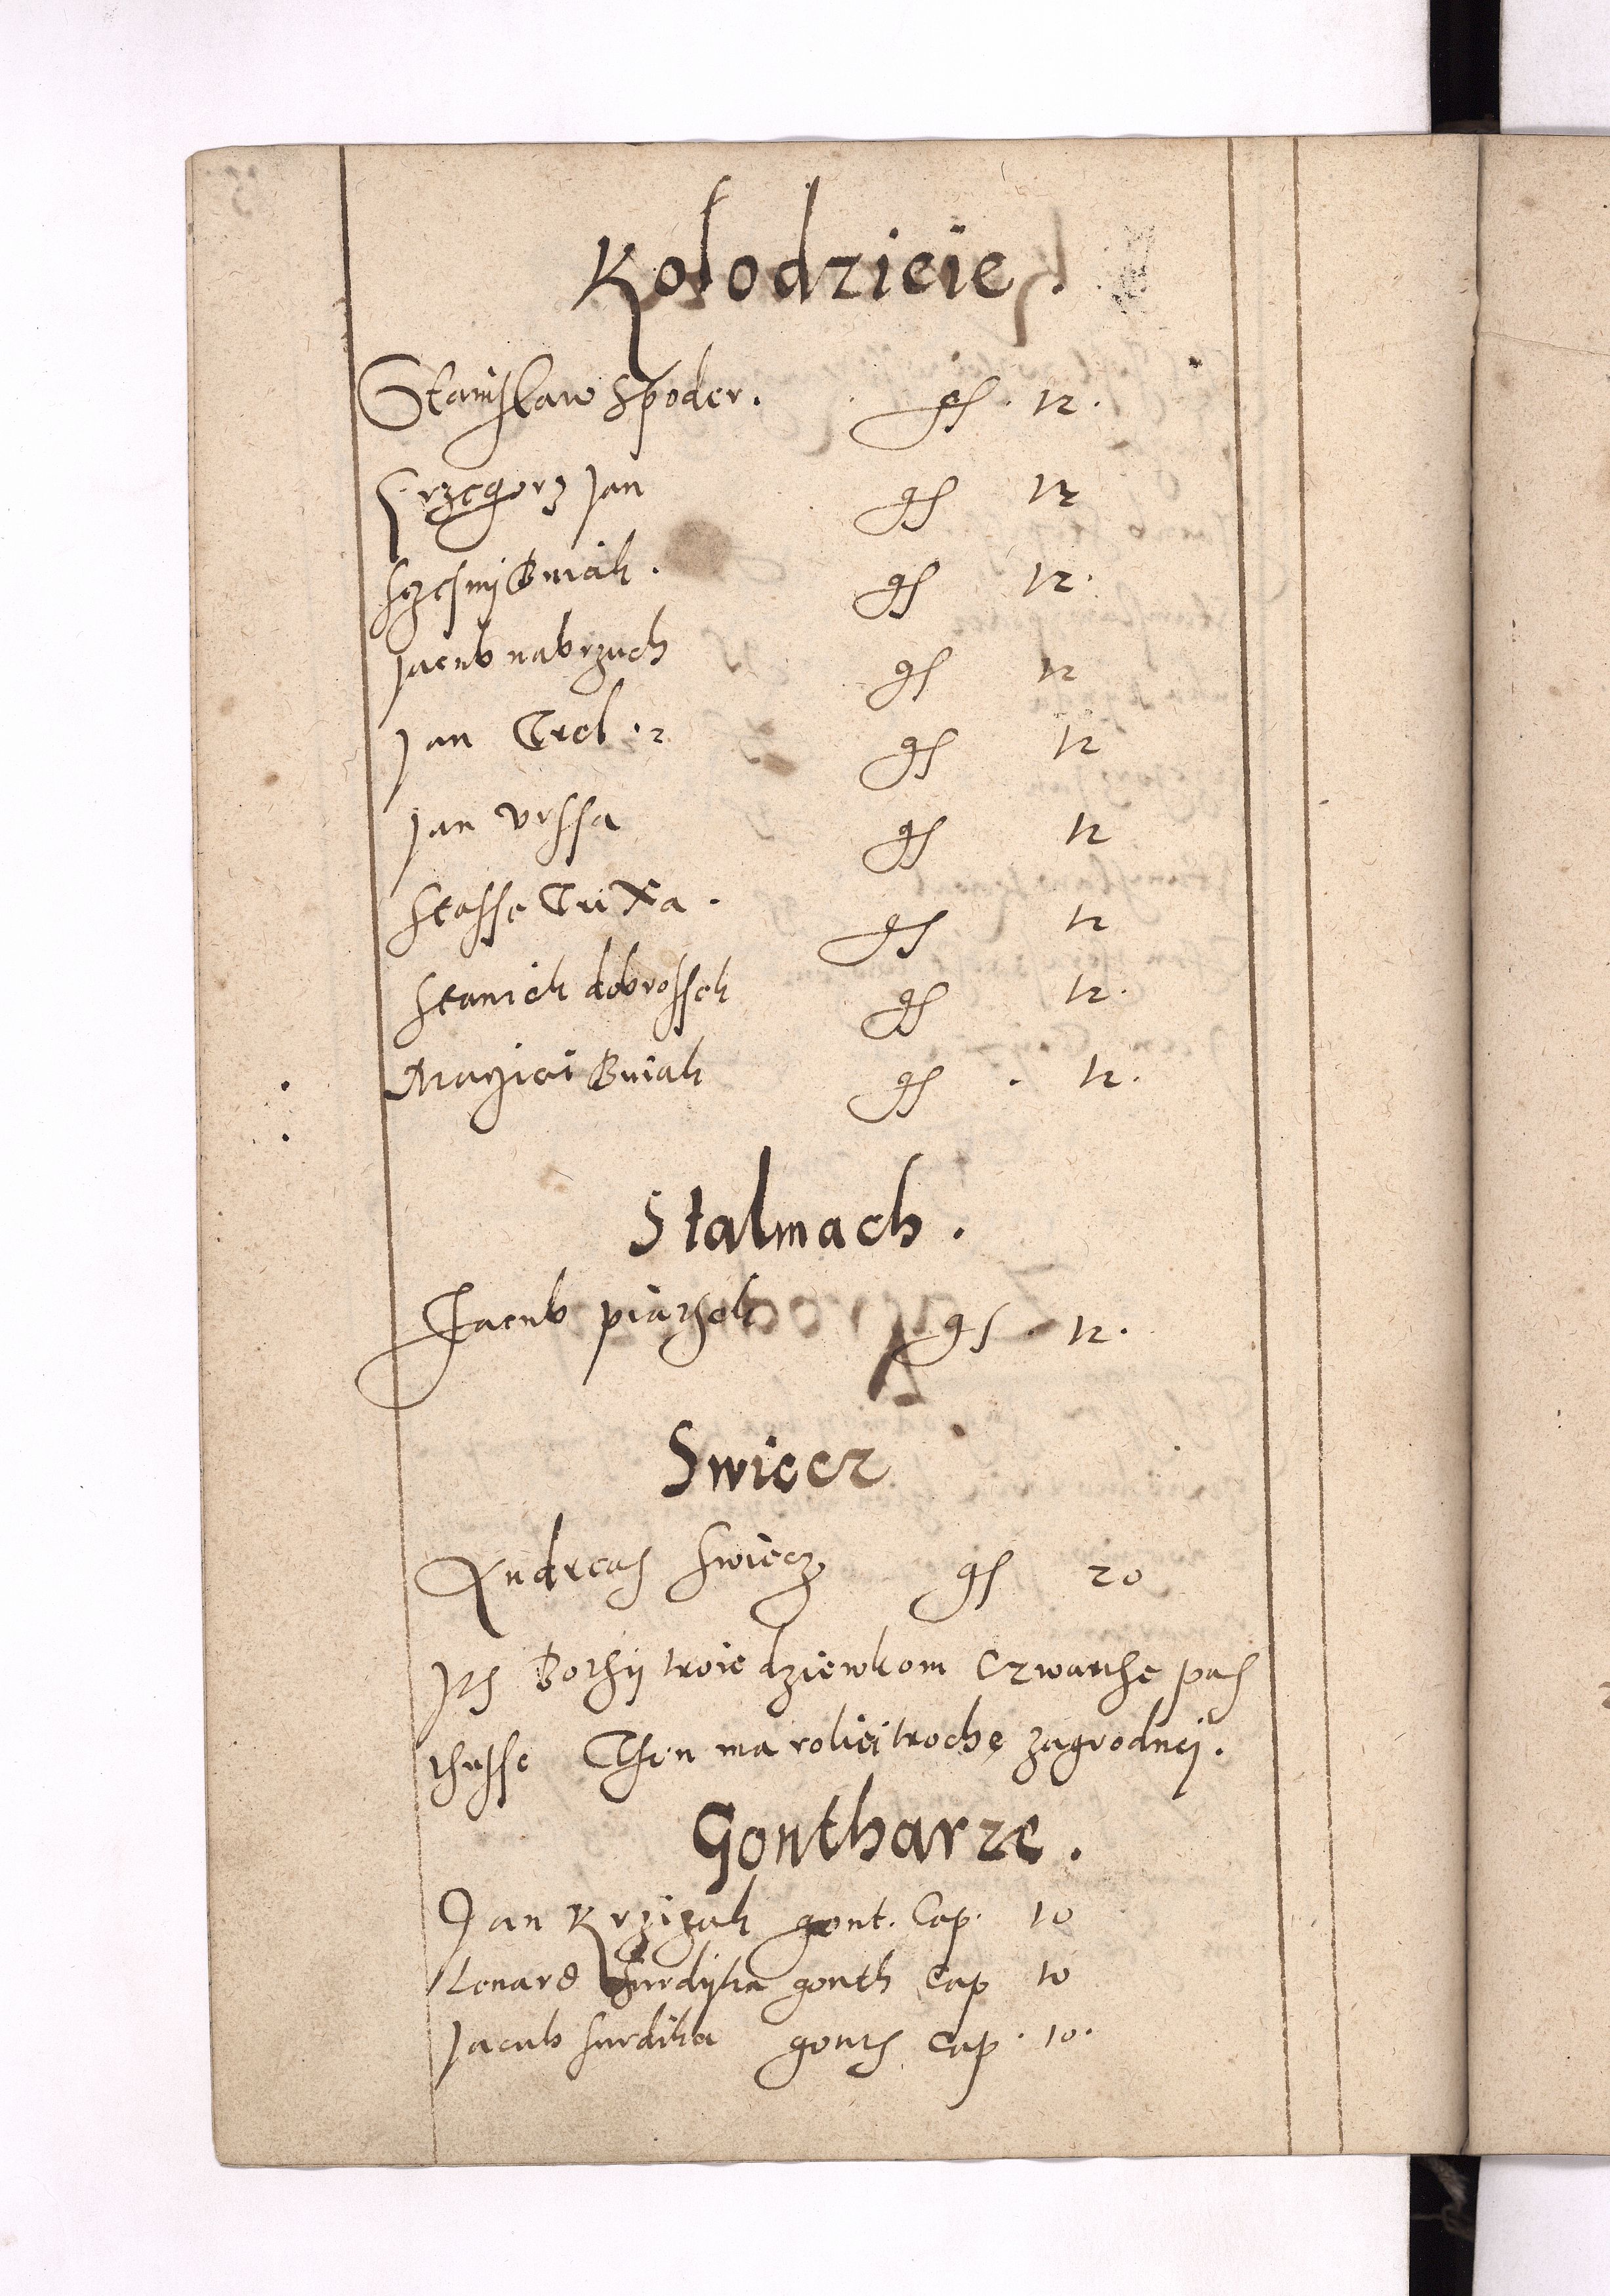 Kolodzieie.
Stanislaw Spoder. gs. 12.
Grzegorz Jan gs 12
Sczesnÿ Bniak. gs 12.
Jacub nabrzuch gs 12
Jan Trel gs 12
Jan Urssa gs 12
Stasse gs 12
Stanick dobrossek gs 12.
Macziei Bniak gs. 12.
Stalmach.
Jacub piarzek gs. 12.
Swiecz
Andreas Swiecz gs 20
troie dziewkom Czwarthe
Then ma roliei trochę zagrodnej.
Gontharze.
Jan Krzizak gont. Cap. 10
Lenard Surdÿka gonth Cap 10
Jacub Surdika gonth Cap. 10.